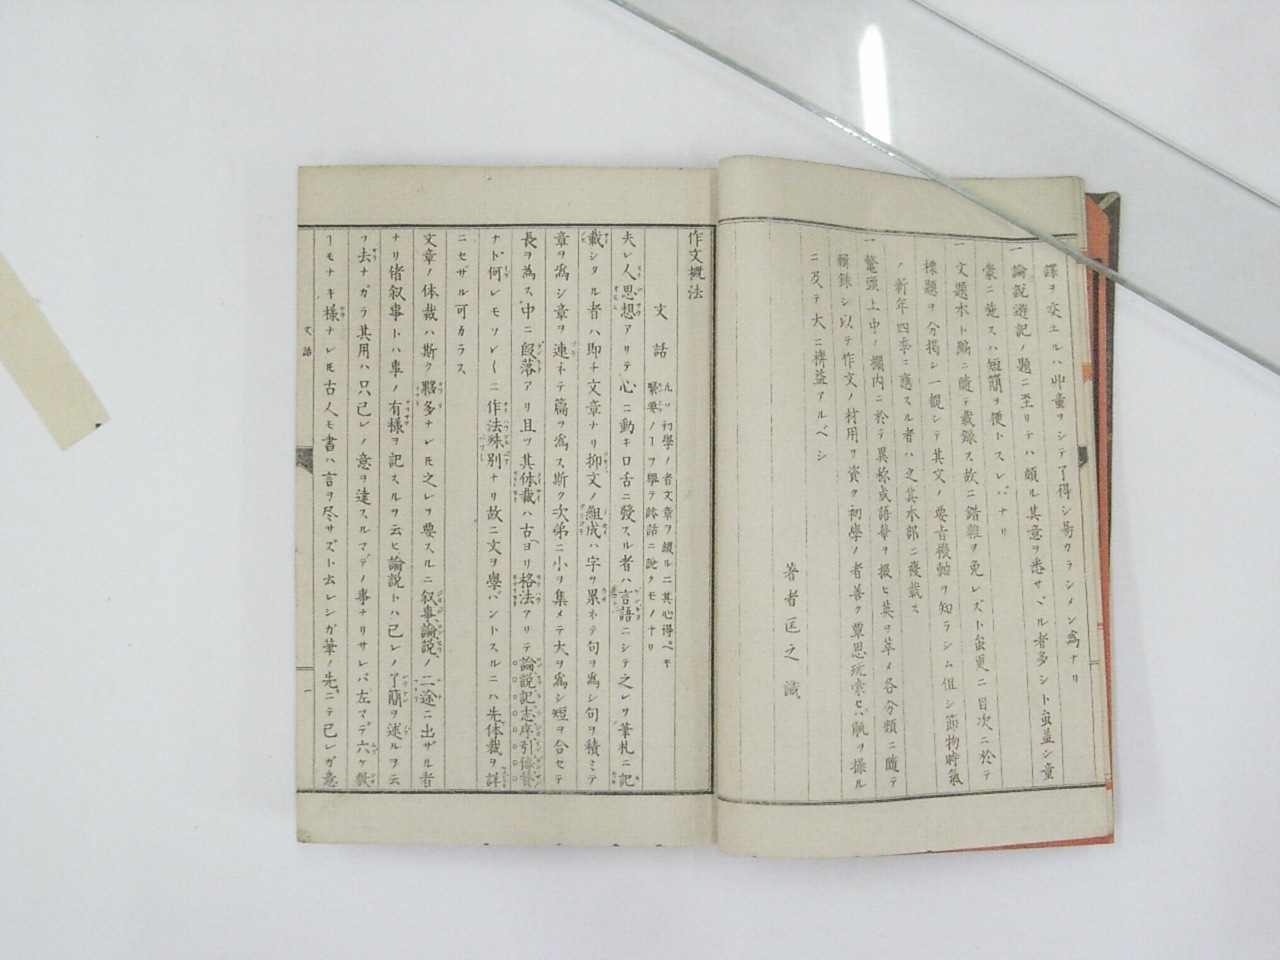 譯ヲ交ユルハ艸童ヲシテ了得シ易カラシメン爲ナリ
一論説遊記ノ題ニ至リテハ頗ル其意ヲ悉サヾル者多シト虽蓋シ童
蒙ニ施スハ短簡ヲ便トスレバナリ
一文題本ト編ニ隨テ載録ス故ニ錯雜ヲ免レズト虽更ニ目次ニ於テ
標題ヲ分掲シ一覩シテ其文ノ要旨機軸ヲ知ラシム但シ節物時氣
ノ新年四季ニ應スル者ハ之其本部ニ護載ス
一鼇頭上中ノ欄内ニ於テ異称成語華ヲ掇ヒ英ヲ萃メ各分類ニ隨テ
輯録シ以テ作文ノ材用ヲ資ク初學ノ者善ク覃思玩索セバ觚ヲ操ル
ニ及テ大ニ裨益アルベシ
著者匡之識
作文概法
文話
凡ソ初學ノ者文章ヲ綴ルニ其心得ベキ
緊要ノヿヲ擧テ詠話ニ説クモノナリ
夫レ人思想アリテ心ニ動キ口舌ニ發スル者ハ言語ニシテ之レヲ筆札ニ記
載シタル者ハ即チ文章ナリ抑文ノ組成ハ字ヲ累ネテ句ヲ爲シ句ヲ積ミテ
章ヲ爲シ章ヲ連ネテ篇ヲ爲ス斯ク次第ニ小ヲ集メテ大ヲ爲シ短ヲ合セテ
長ヲ爲ス中ニ段落アリ且ツ其体裁ハ古ヨリ格法アリテ論説記志序引傳贊
ナド何レモソレ〳〵ニ作法殊別ナリ故ニ文ヲ學バントスルニハ先体裁ヲ詳
ニセザル可カラス
文章ノ体裁ハ斯ク夥多ナレ𪜈之レヲ要スルニ叙事論説ノ二途ニ出ザル者
ナリ偖叙事トハ事ノ有樣ヲ記スルヲ云ヒ論説トハ己レノ了簡ヲ述ルヲ云
ヲ去ナガラ其用ハ只己レノ意ヲ達スルマデノ事ナリサレバ左マデ六ケ敷
ヿモナキ様ナレ𪜈古人モ書ハ言ヲ尽サズト云レシガ筆ノ先ニテ己レガ意
文話
一